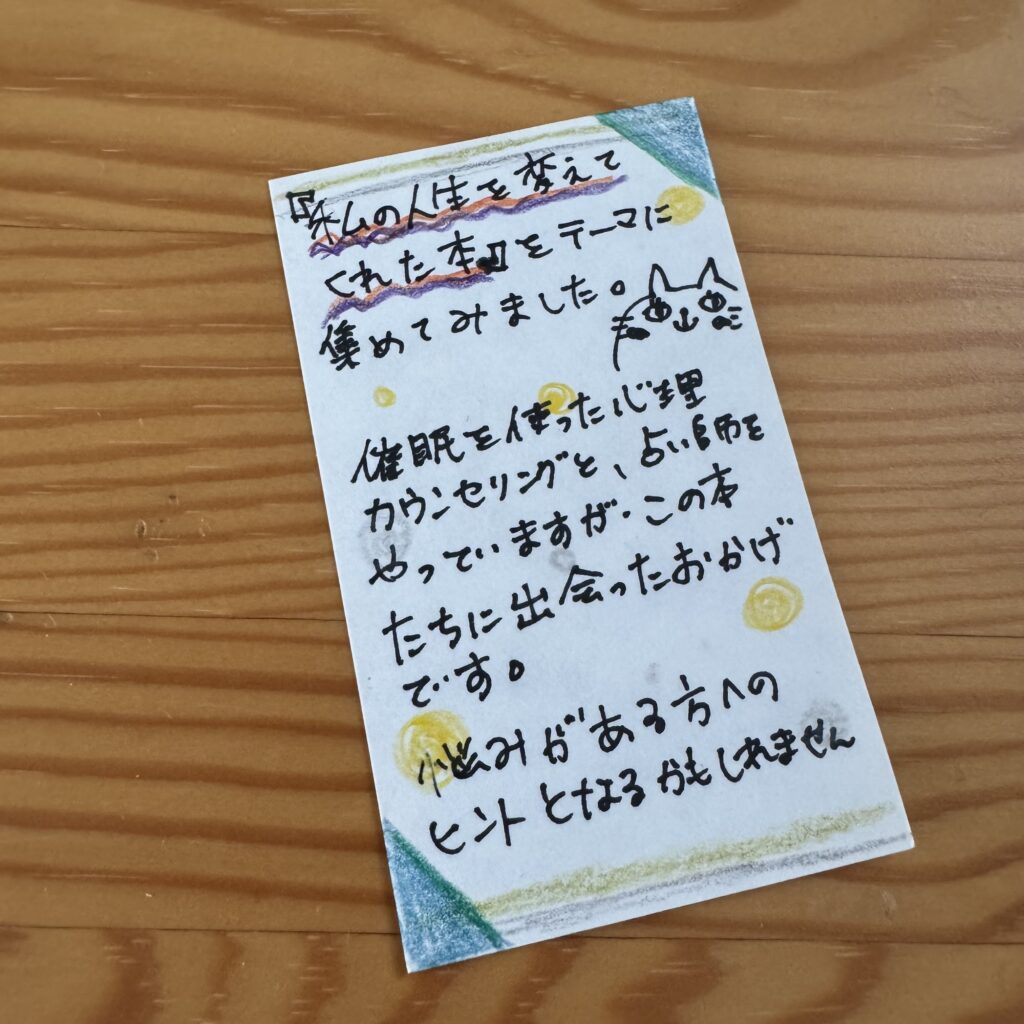 『私の人生を変えて
くれた本』をテーマに
集めてみました。
催眠を使った心理
カウンセリングと、占い師を
やっていますが、この本
たちに出会ったおかげ
です。
悩みがある方への
ヒントとなるかもしれません